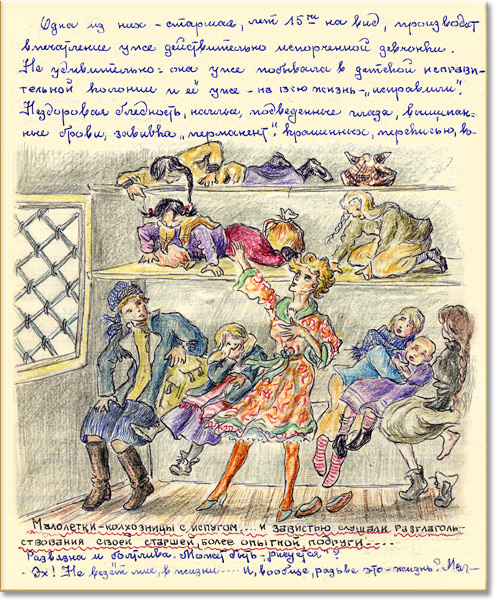 Одна из них - старшая, лет 15ти на вид, производит
впечатление уже действительно испорченной девчонки.
Не удивительно: она уже побывала в детской исправи-
тельной колонии и её уже - на всю жизнь - „исправили“.
Нездоровая бледность, наглые, подведенные глаза, выщипан-
ные брови, завивка „перманент“ крашенных, перекисью, во-
Малолетки-колхозницы с испугом... и завистью слушали разглаголь-
ствования своей старшей, более опытной подруги....
Развязна и болтлива. Может быть - „рисуется“?
- Эх! Не везёт мне, в жизни ..... И, вообще, разьве это - жизнь?